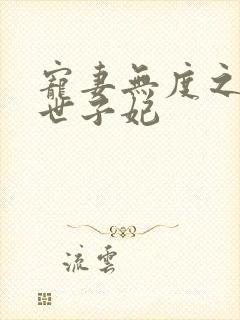 寵妻無度之
世子妃
流雲